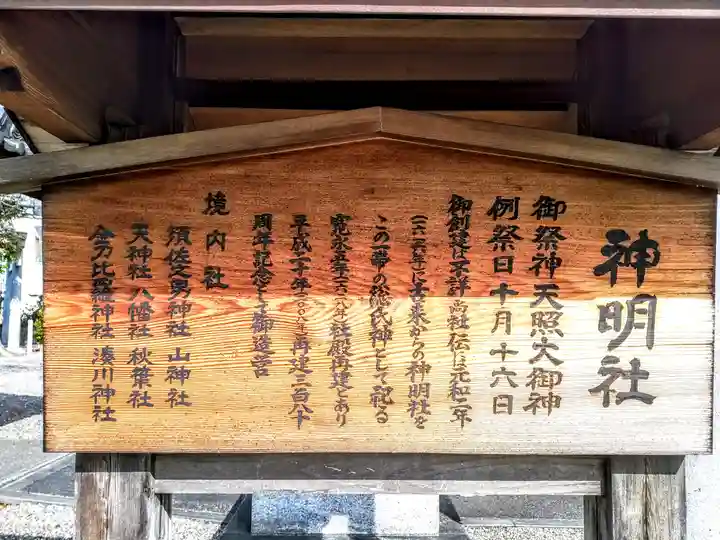 神明社
御祭神 天照大御神
例祭日 十月十六日
御創建は不詳 尚社伝は元和二年
(一六一六年)に古来からの神明社を
この華の総氏神として祀る
寛永五年(一六二八年)社殿再建とあり
平成二十年(二〇〇八年)再建三百八十
周年記念として御造営
境内社
須佐之男神社 山神社
天神社 八幡社 秋葉社
金刀比羅神社 湊川神社